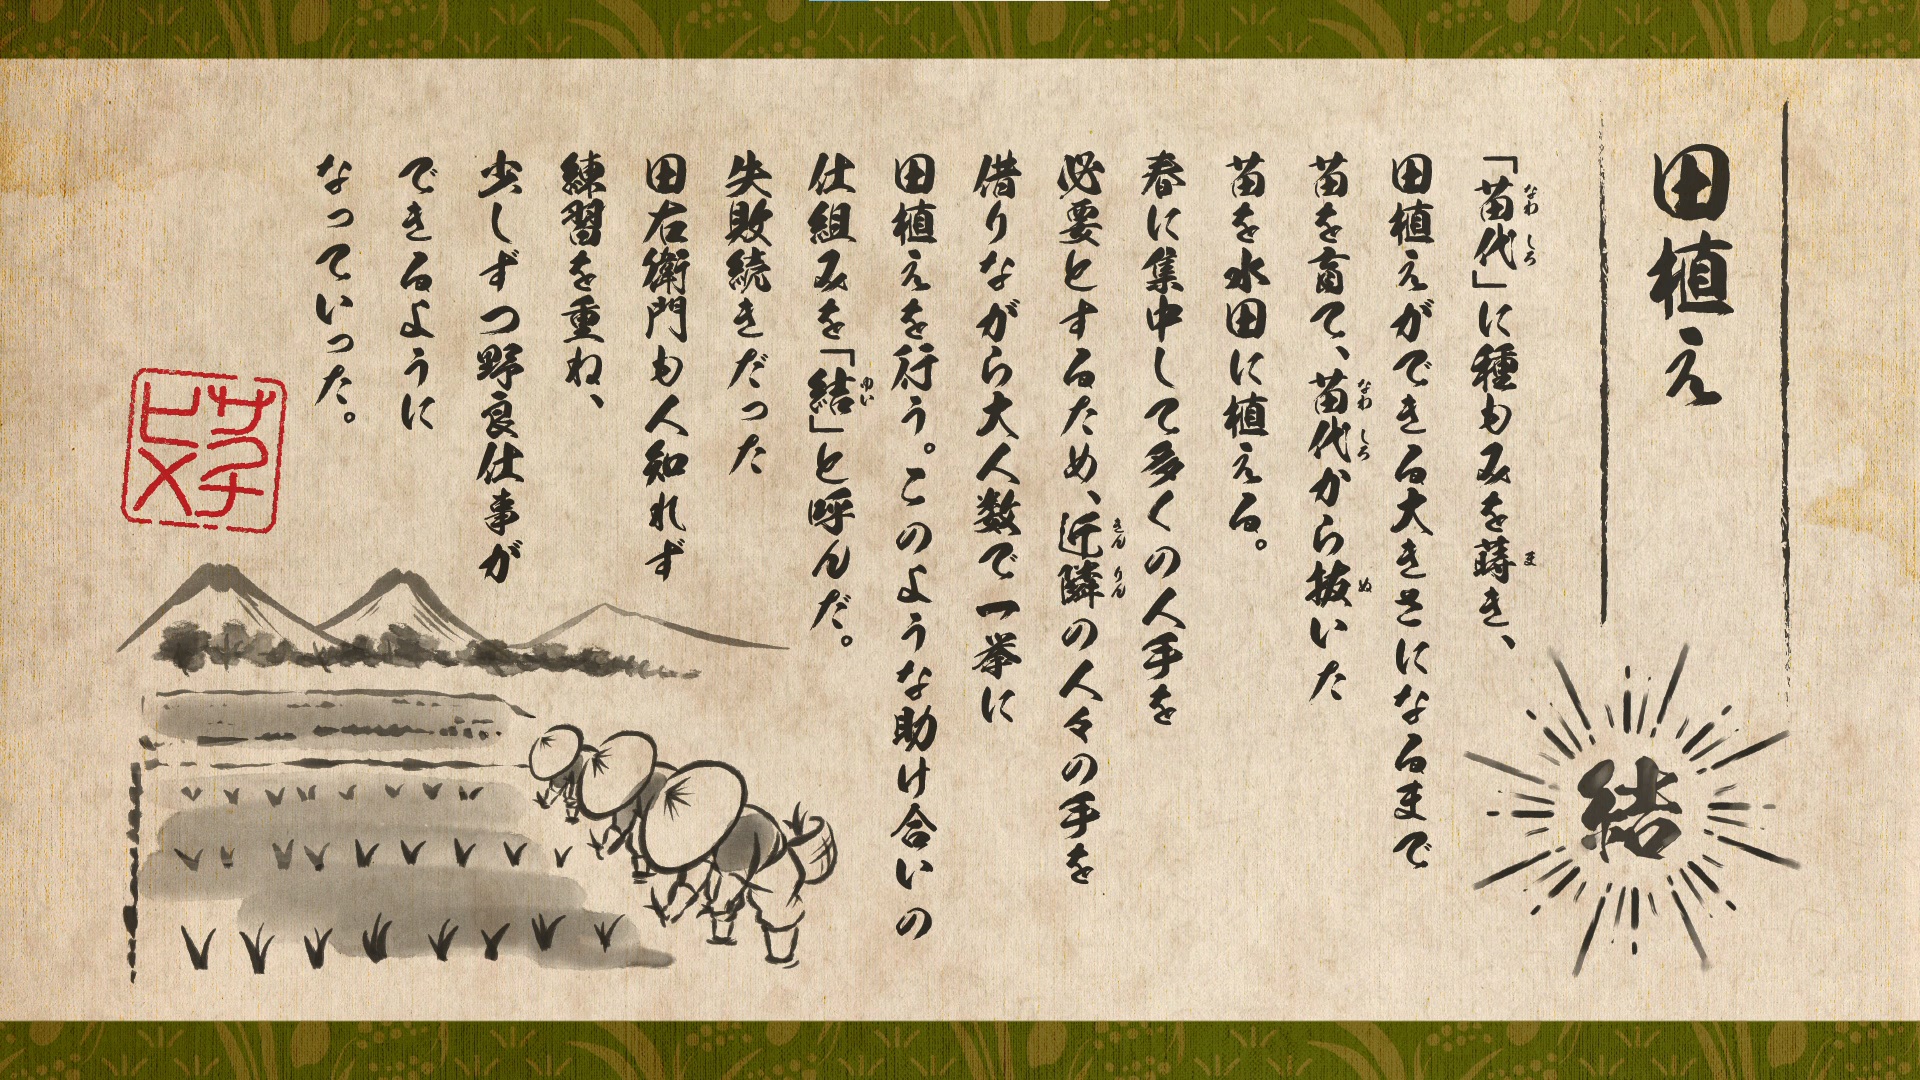 田植え
「苗代」に種もみを蒔き、
田植えができる大きさになるまで
苗を畜て、苗代から抜いた
苗を水田に植える。
春に集中して多くの人手を
必要とするため、近隣の人々の手を
借りながら大人数で一挙に
田植えを行う。このような助け合いの
仕組みを「結」と呼んだ。
失敗続きだった
田右衛門も人知れず
練習を重ね、
少しずつ野良仕事が
できるように
なっていった。
結